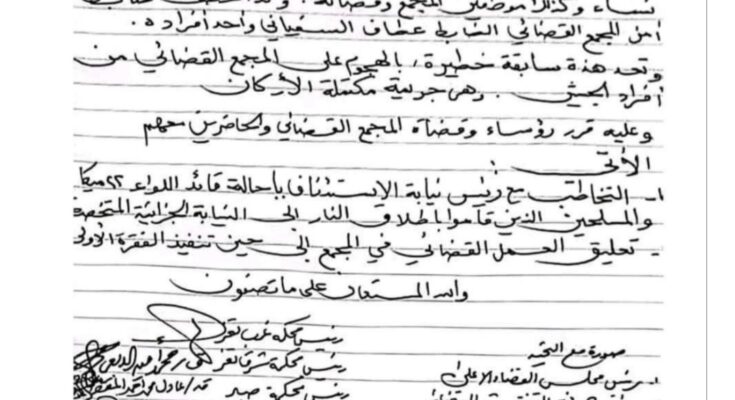 نساء وكذلك موظفين المجمع وقضاته.
أمن المجمع القضائي الضابط عفاف السفياني وأحد أفراده.
وتعد هذه سابقة خطيرة، بالهجوم على المجمع القضائي من
أفراد الجيش. وهي جريمة مكتملة الأركان
وعليه قرر رؤساء وقضاة المجمع القضائي والحاضرين معهم
الآتي :
١- التخاطب مع رئيس نيابة الاستئناف بإحالة قائد اللواء ٢٢ ميكا
والمسلحين الذين قاموا باطلاق النار الى النيابة الجزائية المتخصصة
- تعليق العمل القضائي في المجمع الى حين تنفيذ الفقرة الأولى
والله المستعان على ما تصفون
رئيس محكمة غرب تعز
صورة مع التحية
رئيس محكمة شرق تعز
رئيس مجلس القضاء الأعلى
رئيس محكمة صبر